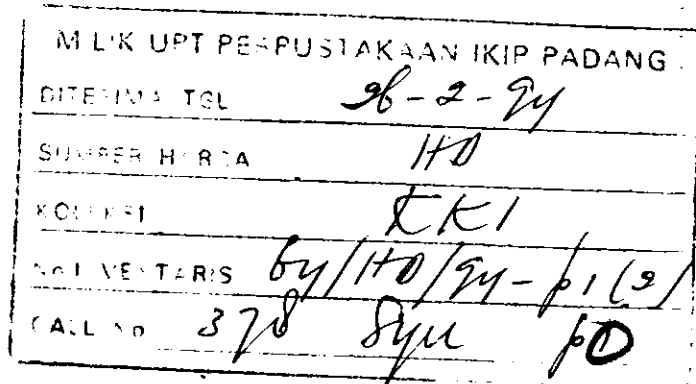 MILIK UPT PERPUSTAKAAN IKIP PADANG
DITERIMA TGL 26-2-94
SUMBER HARGA HD
KOLEKSI KKI
No. INVENTARIS 64/HD/94-p1(2)
CALL No 378 Syu p0